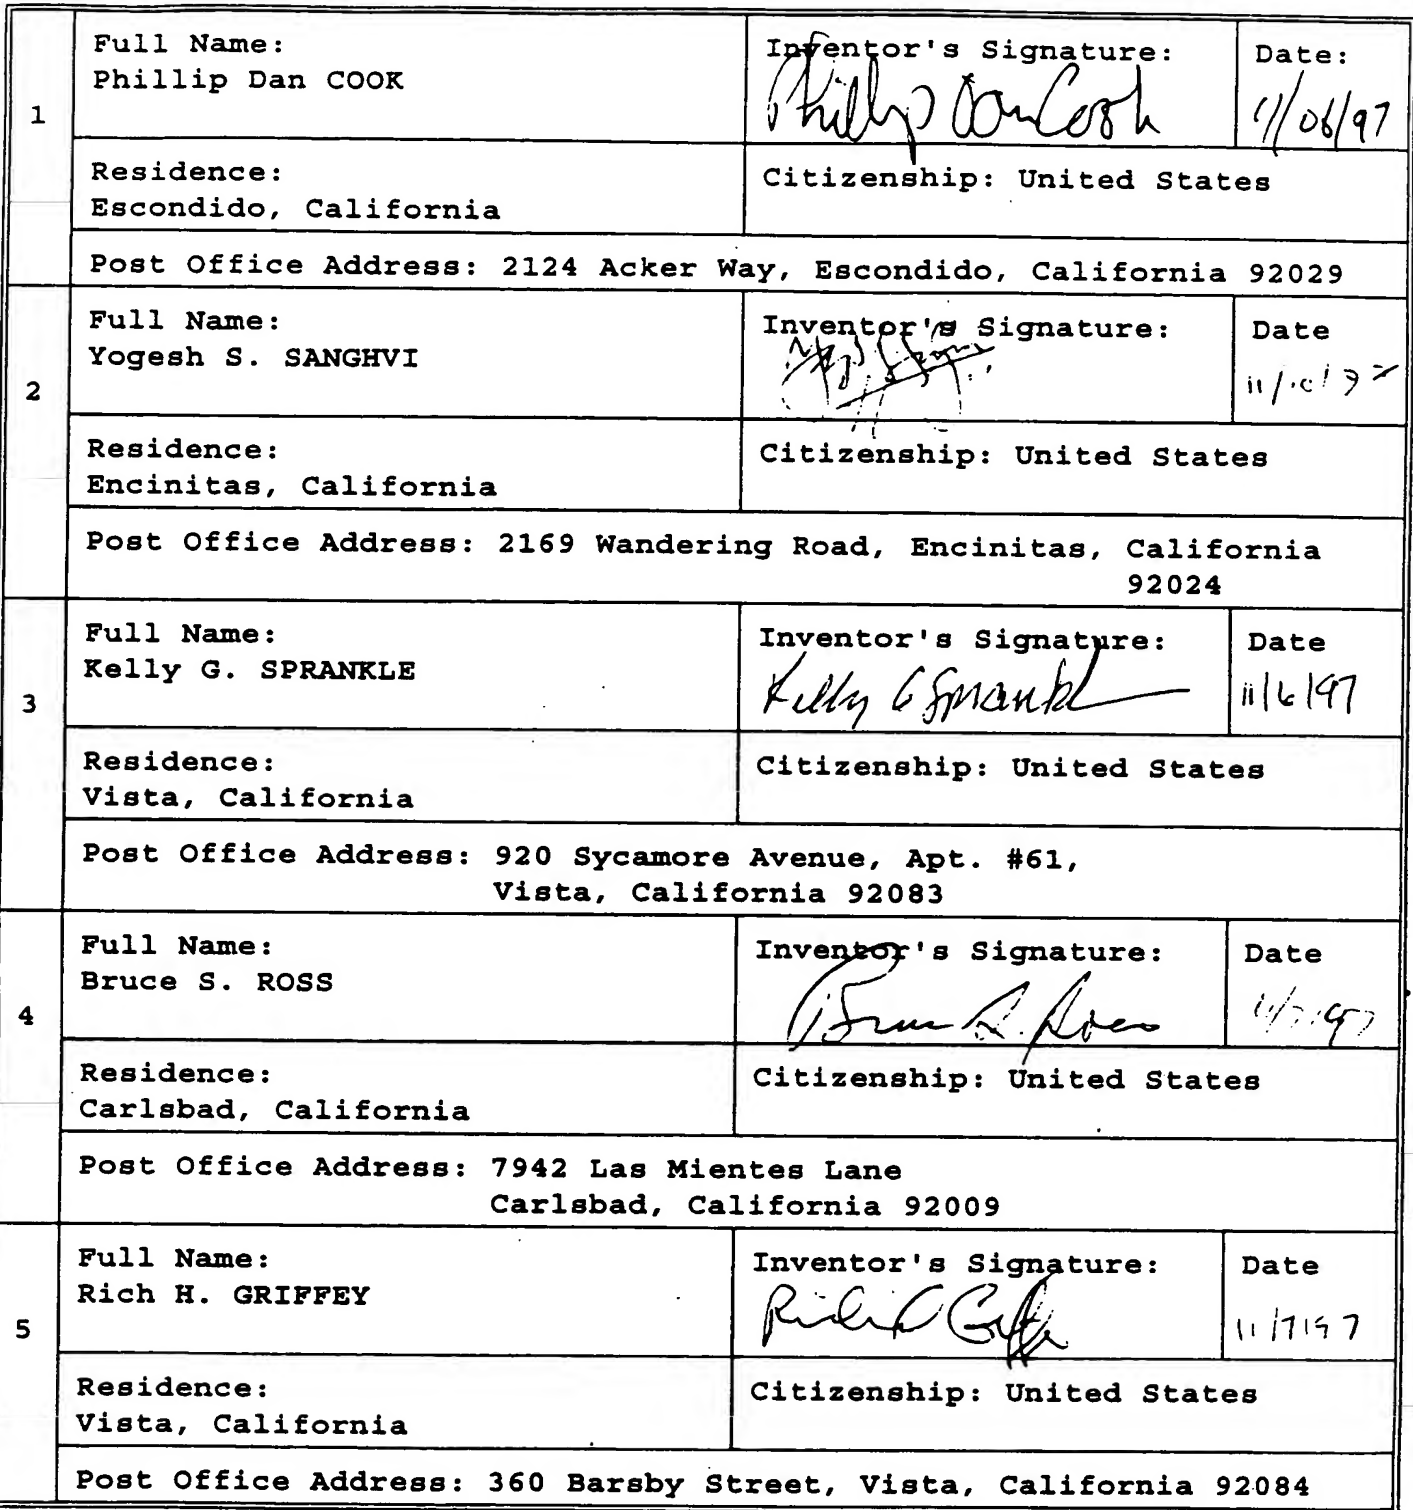 1
Full Name:
Phillip Dan COOK
Inventor's Signature:
Phillip Dan Cook
Date:
11/06/97
Residence:
Escondido, California
Citizenship: United States
Post Office Address: 2124 Acker Way, Escondido, California 92029
2
Full Name:
Yogesh S. SANGHVI
Inventor's Signature:
Date
11/10/97
Residence:
Encinitas, California
Citizenship: United States
Post Office Address: 2169 Wandering Road, Encinitas, California
92024
3
Full Name:
Kelly G. SPRANKLE
Inventor's Signature:
Kelly G Sprankle
Date
11/6/97
Residence:
Vista, California
Citizenship: United States
Post Office Address: 920 Sycamore Avenue, Apt. #61,
Vista, California 92083
4
Full Name:
Bruce S. ROSS
Inventor's Signature:
Bruce S. Ross
Date
11/7/97
Residence:
Carlsbad, California
Citizenship: United States
Post Office Address: 7942 Las Mientes Lane
Carlsbad, California 92009
5
Full Name:
Rich H. GRIFFEY
Inventor's Signature:
Richard Griffey
Date
11/7/97
Residence:
Vista, California
Citizenship: United States
Post Office Address: 360 Barsby Street, Vista, California 92084